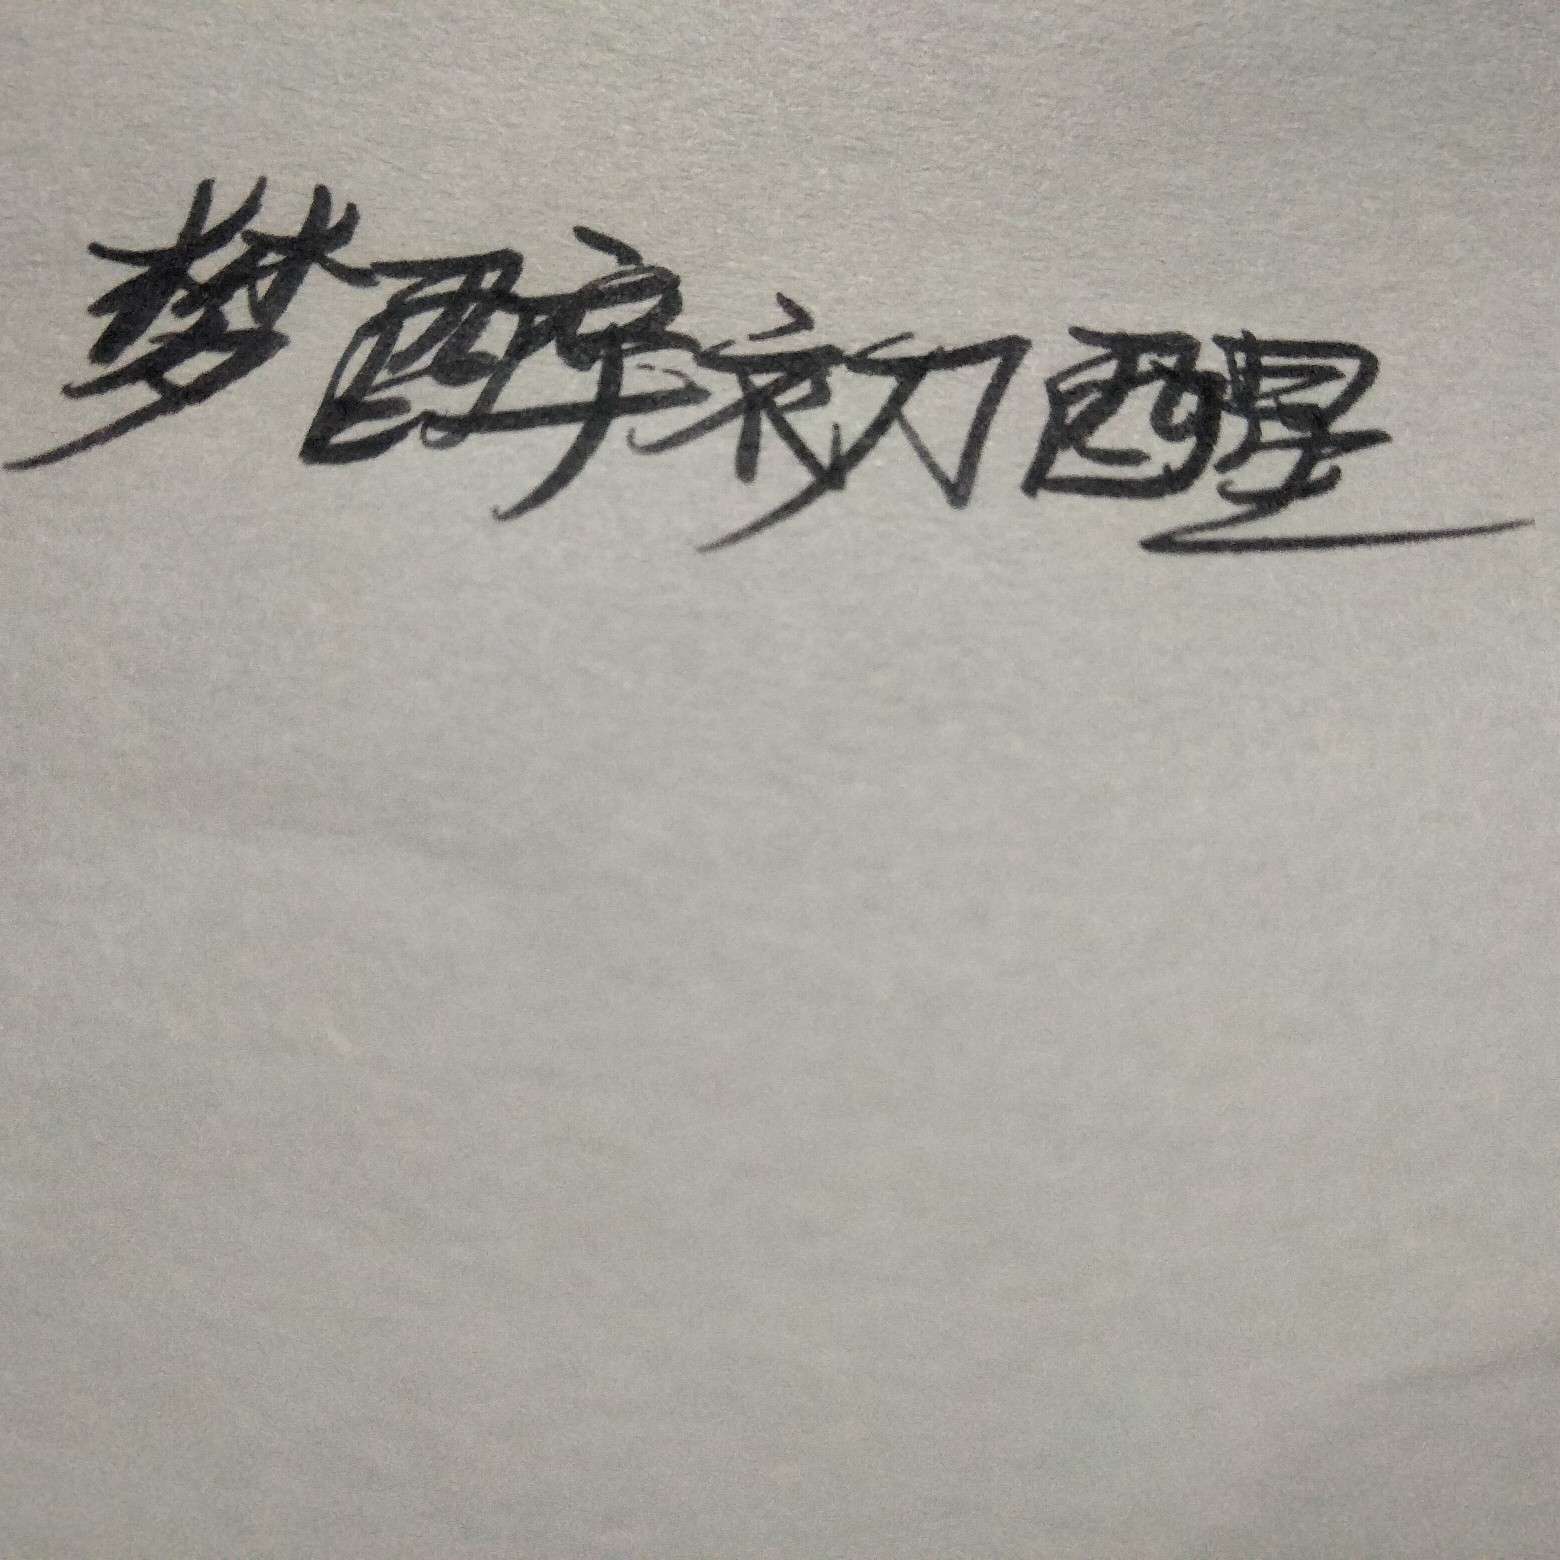 梦醉初醒